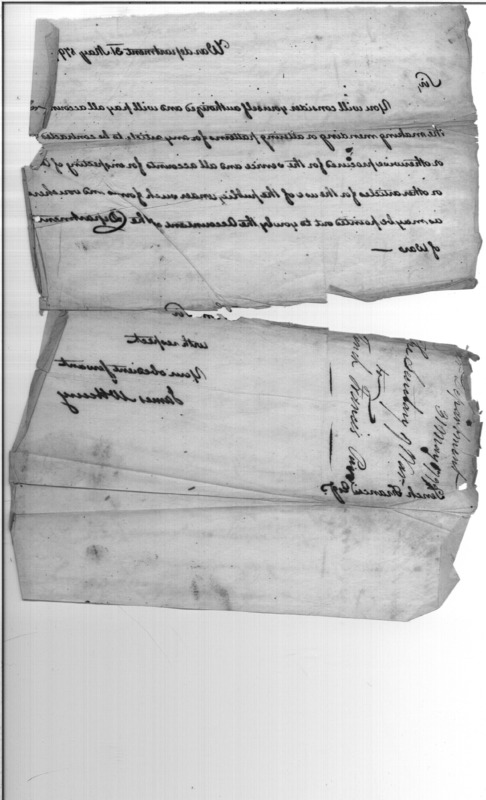 War department 31 May 179
Sir,
You will consider yourself authorized and will pay all accoun
the making mending or altering patterns for any article to be contracted
or otherwise procured for the service and all accounts for inspecting of
or other articles for the use of the public, under such forms and vouchers
as may be pointed out to you by the Accountant of the Department
of War —
Sir
with respect
Your obedient servant
James McHenry
Tench Francis Esqr.
31 May
The Secretary of War
to
Tench Francis